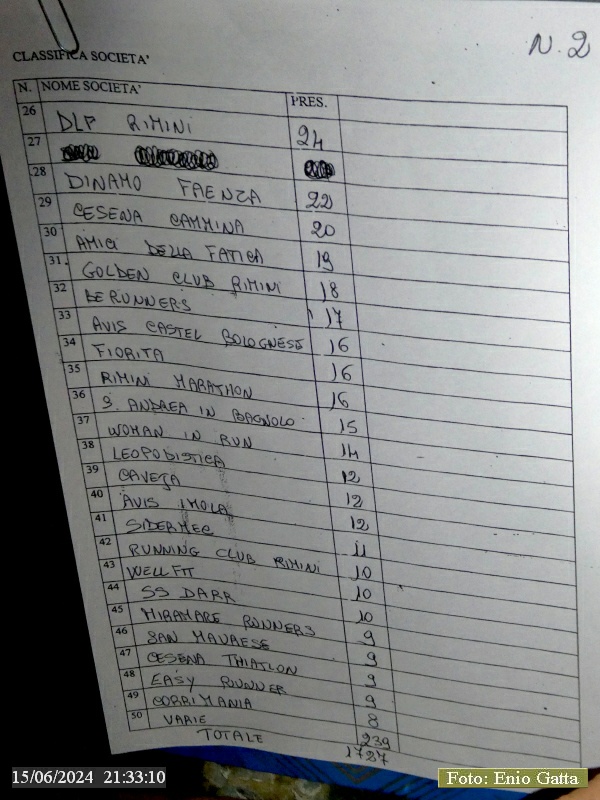 N. 2
CLASSIFICA SOCIETA'
N. NOME SOCIETA' PRES.
26 DLP RIMINI 24
27
28 DINAMO FAENZA 22
29 CESENA CAMMINA 20
30 AMICI DELLA FATICA 19
31 GOLDEN CLUB RIMINI 18
32 BERUNNERS 17
33 AVIS CASTEL BOLOGNESE 16
34 FIORITA 16
35 RIMINI MARATHON 16
36 S. ANDREA IN BAGNOLO 15
37 WOMAN IN RUN 14
38 LEOPODISTICA 12
39 CAVEJA 12
40 AVIS IMOLA 12
41 SIDERMEC 11
42 RUNNING CLUB RIMINI 10
43 WELLFIT 10
44 SS DARR 10
45 MIRAMARE RUNNERS 9
46 SAN MAURESE 9
47 CESENA THIATLON 9
48 EASY RUNNER 9
49 CORRIMANIA 8
50 VARIE 239
TOTALE 1787
15/06/2024 21:33:10
Foto: Enio Gatta